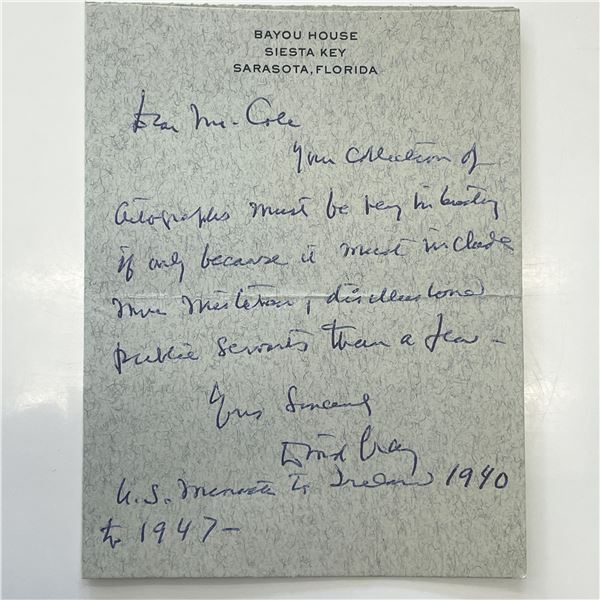 BAYOU HOUSE
SIESTA KEY
SARASOTA, FLORIDA
Dear Mr. Cole
Your Collection of
Autographs must be very interesting
if only because it must include
more mistaken, disillusioned
public servants than a few –
Yours Sincerely
David Gray
U.S. Minister to Ireland 1940
to 1947 –